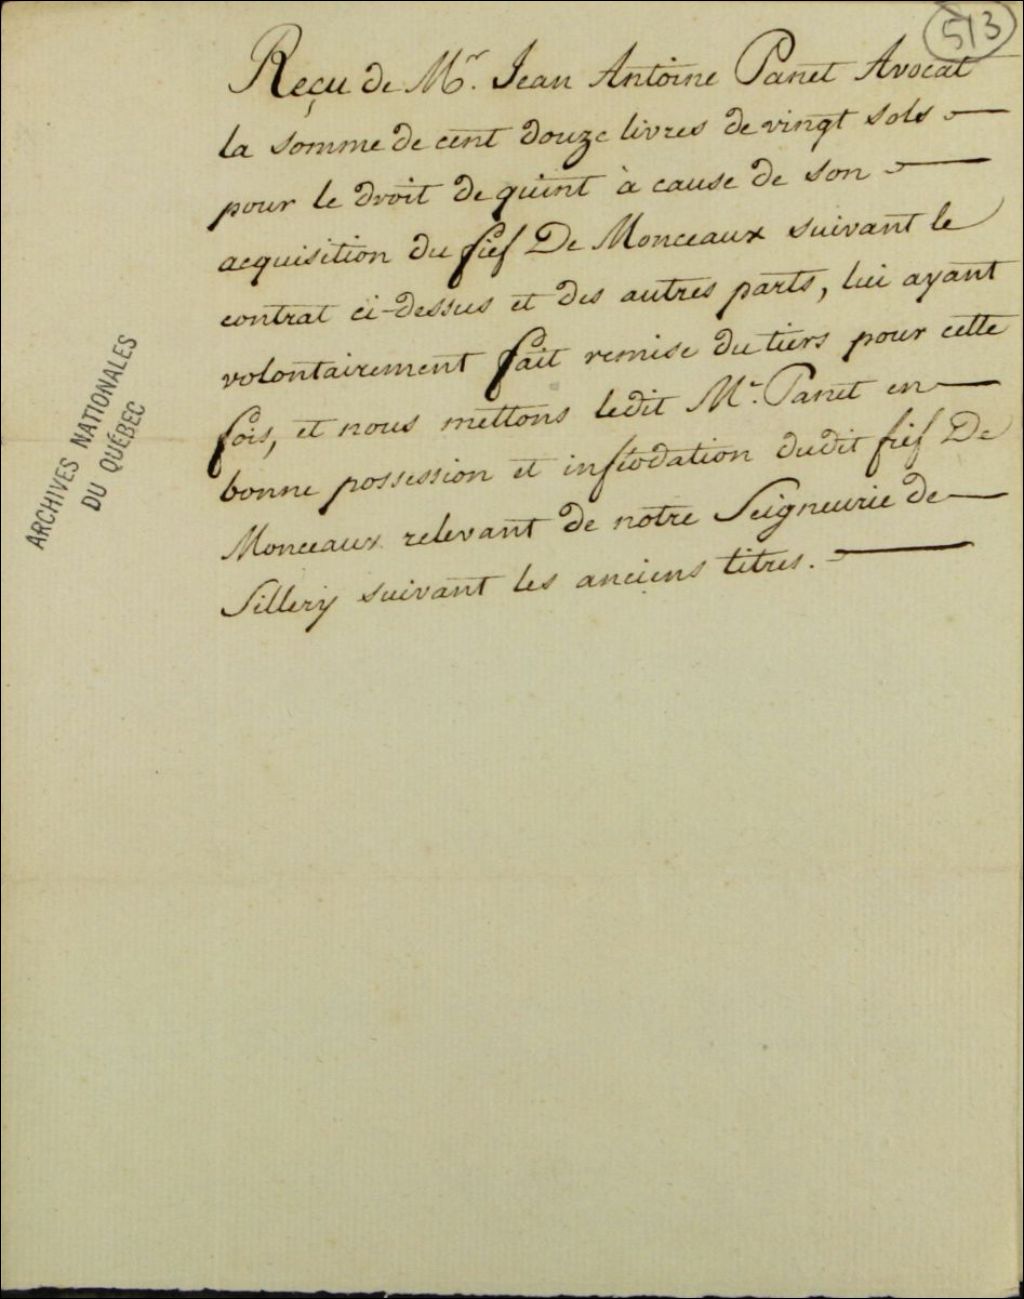 513
Reçu de Mr. Jean Antoine Panet Avocat
la somme de cent douze livres de vingt sols
pour le droit de quint à cause de son
acquisition du fief De Monceaux suivant le
contrat ci-dessus et des autres parts, lui ayant
volontairement fait remise du tiers pour cette
fois, et nous mettons ledit Mr. Panet en
bonne possession et inféodation dudit fief De
Monceaux relevant de notre Seigneurie de
Sillery suivant les anciens titres.
ARCHIVES NATIONALES
DU QUÉBEC